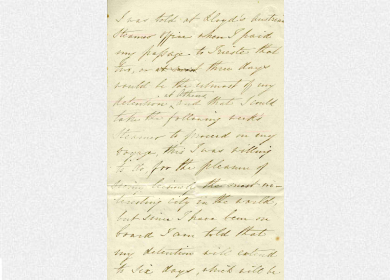 I was told at Lloyd's Austrian
Steamer Office when I paid
my passage to Trieste that
two, or three days
would be the utmost of my
at Athens
detention, and that I could
take the following week's
Steamer to proceed on my
voyage, this I was willing
to do, for the pleasure of
the most in-
teresting city in the world,
but since I have been on
board I am told that
my detention will extend
to Six days, which will be